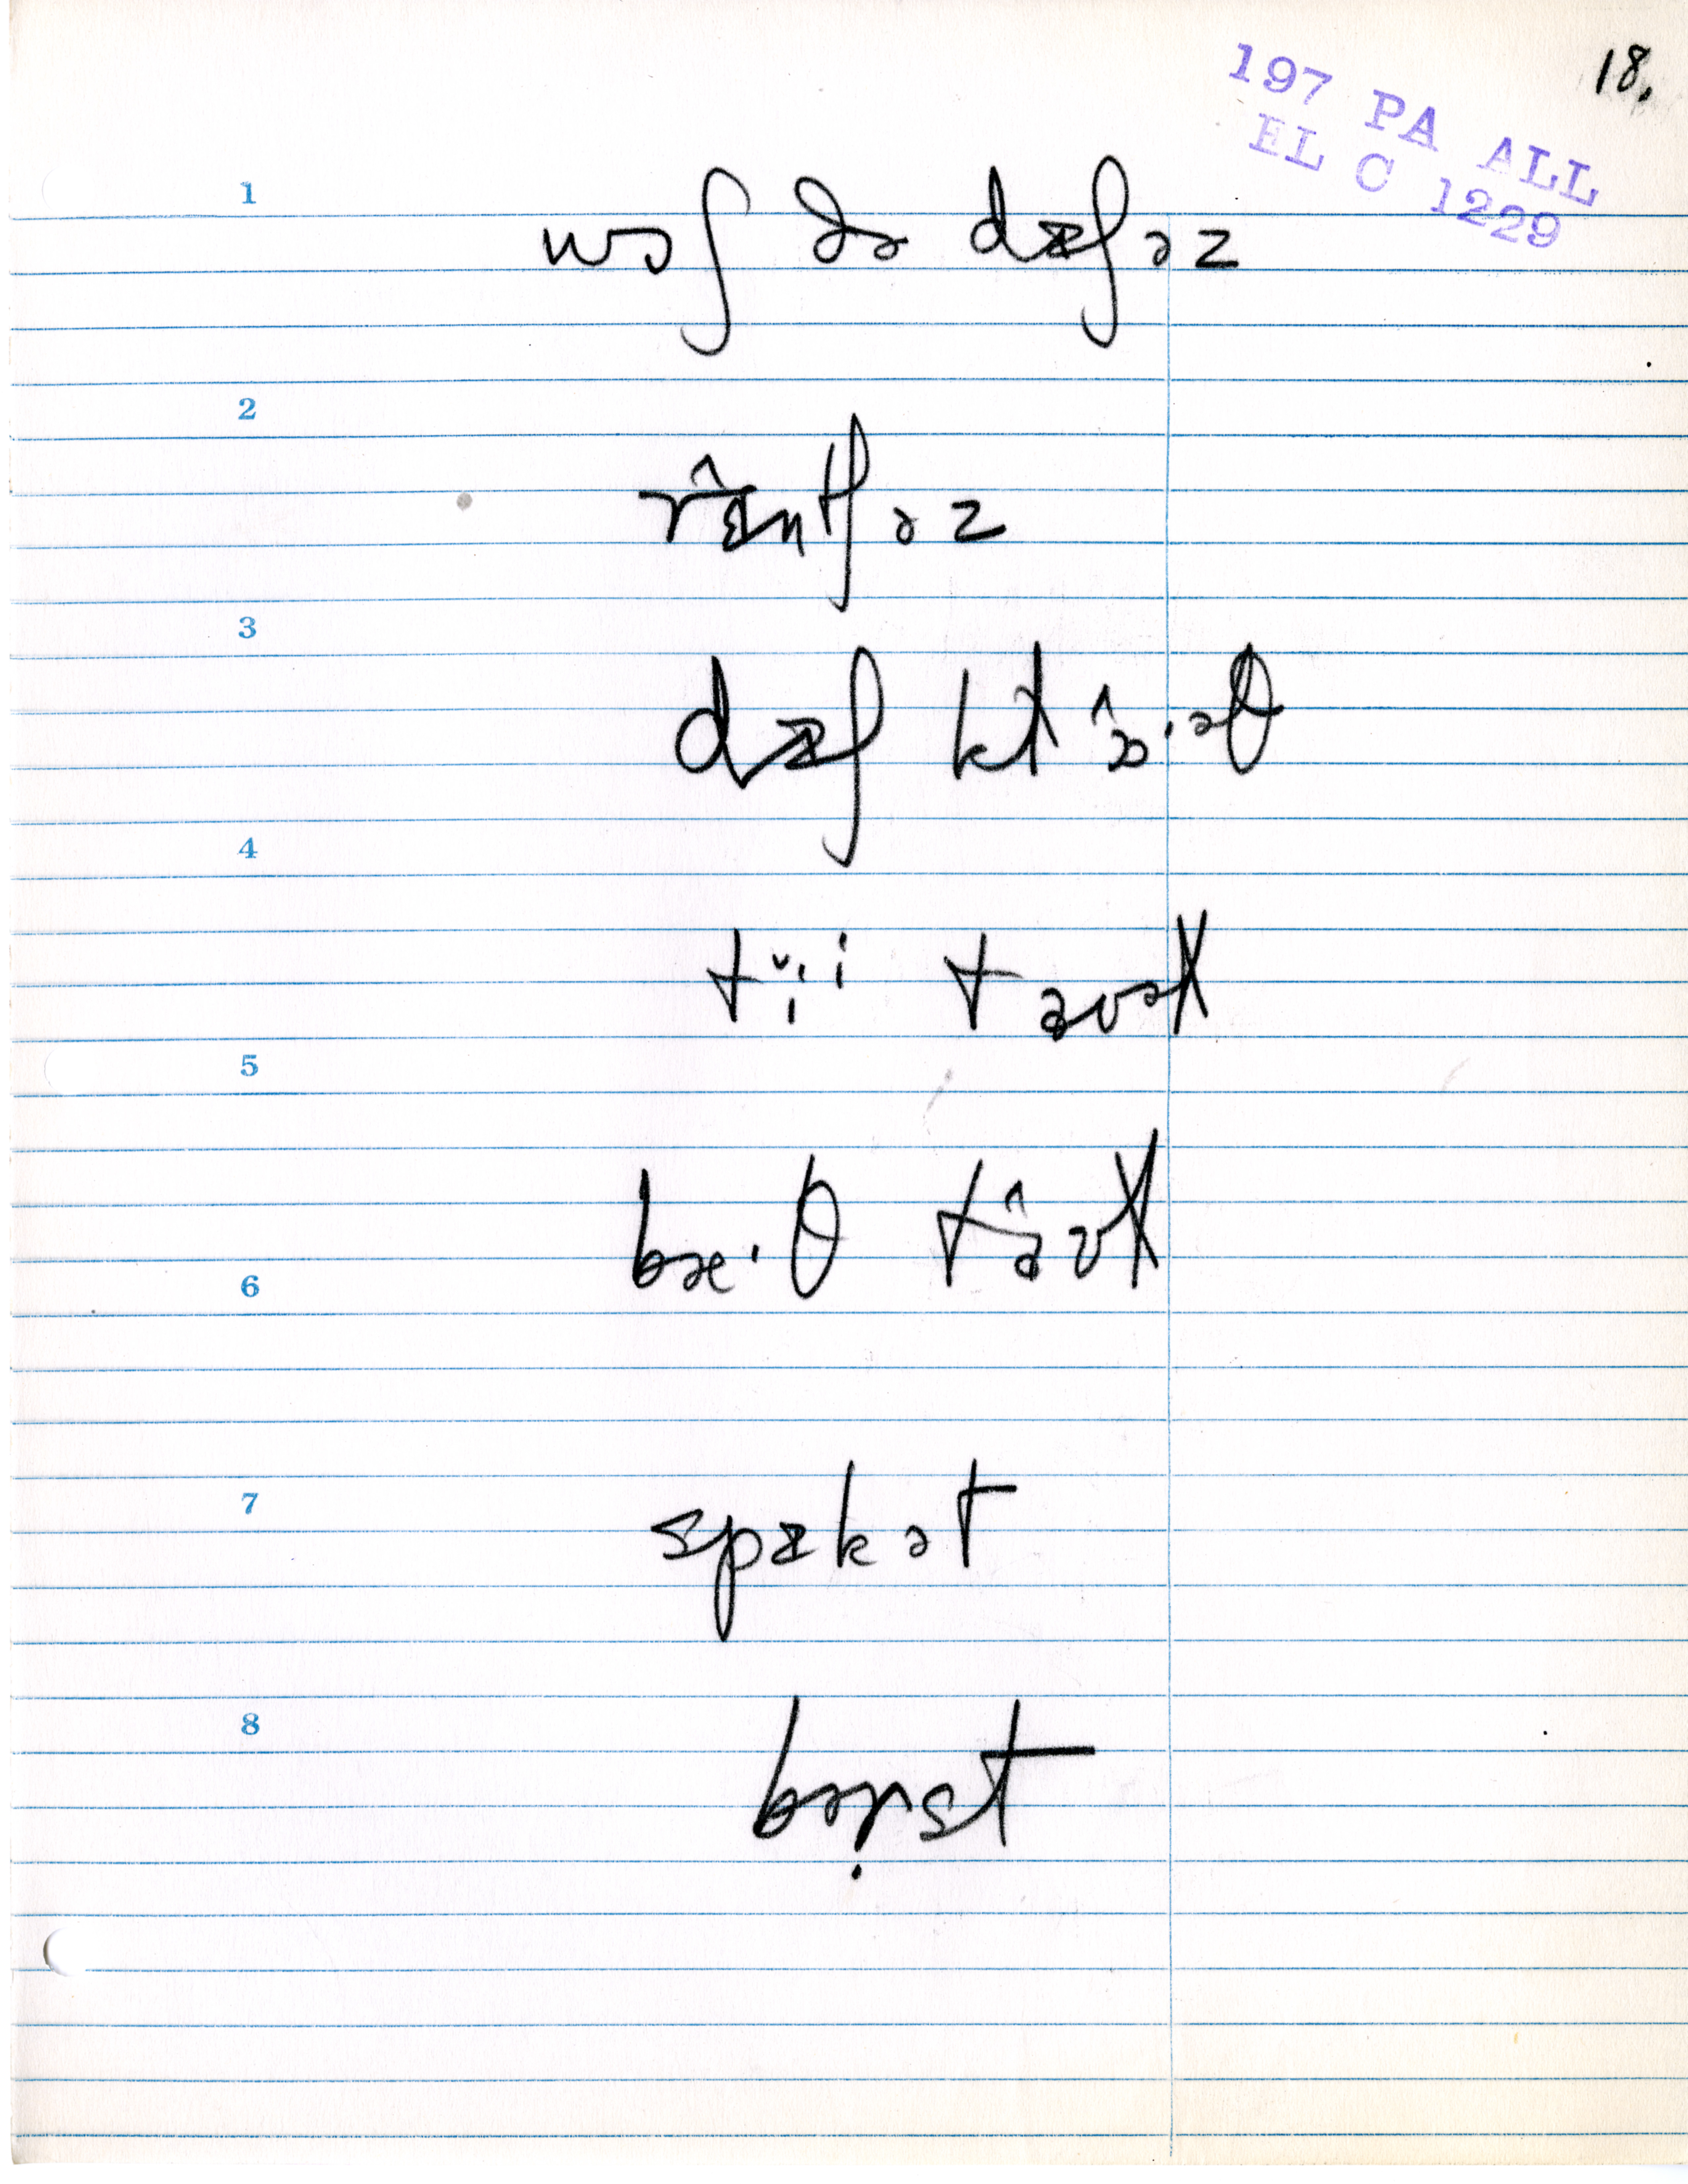 18.
197 PA ALL
EL C 1229
1
wɔʃ ðə dɪʃəz
2
rɪ̂ntʃəz
3
dɪʃ klɔ̂·əθ
4
tɪ̆·i taʊəl
5
bæ·θ tâʊl
6
7
spɪkət
8
bə̣rst